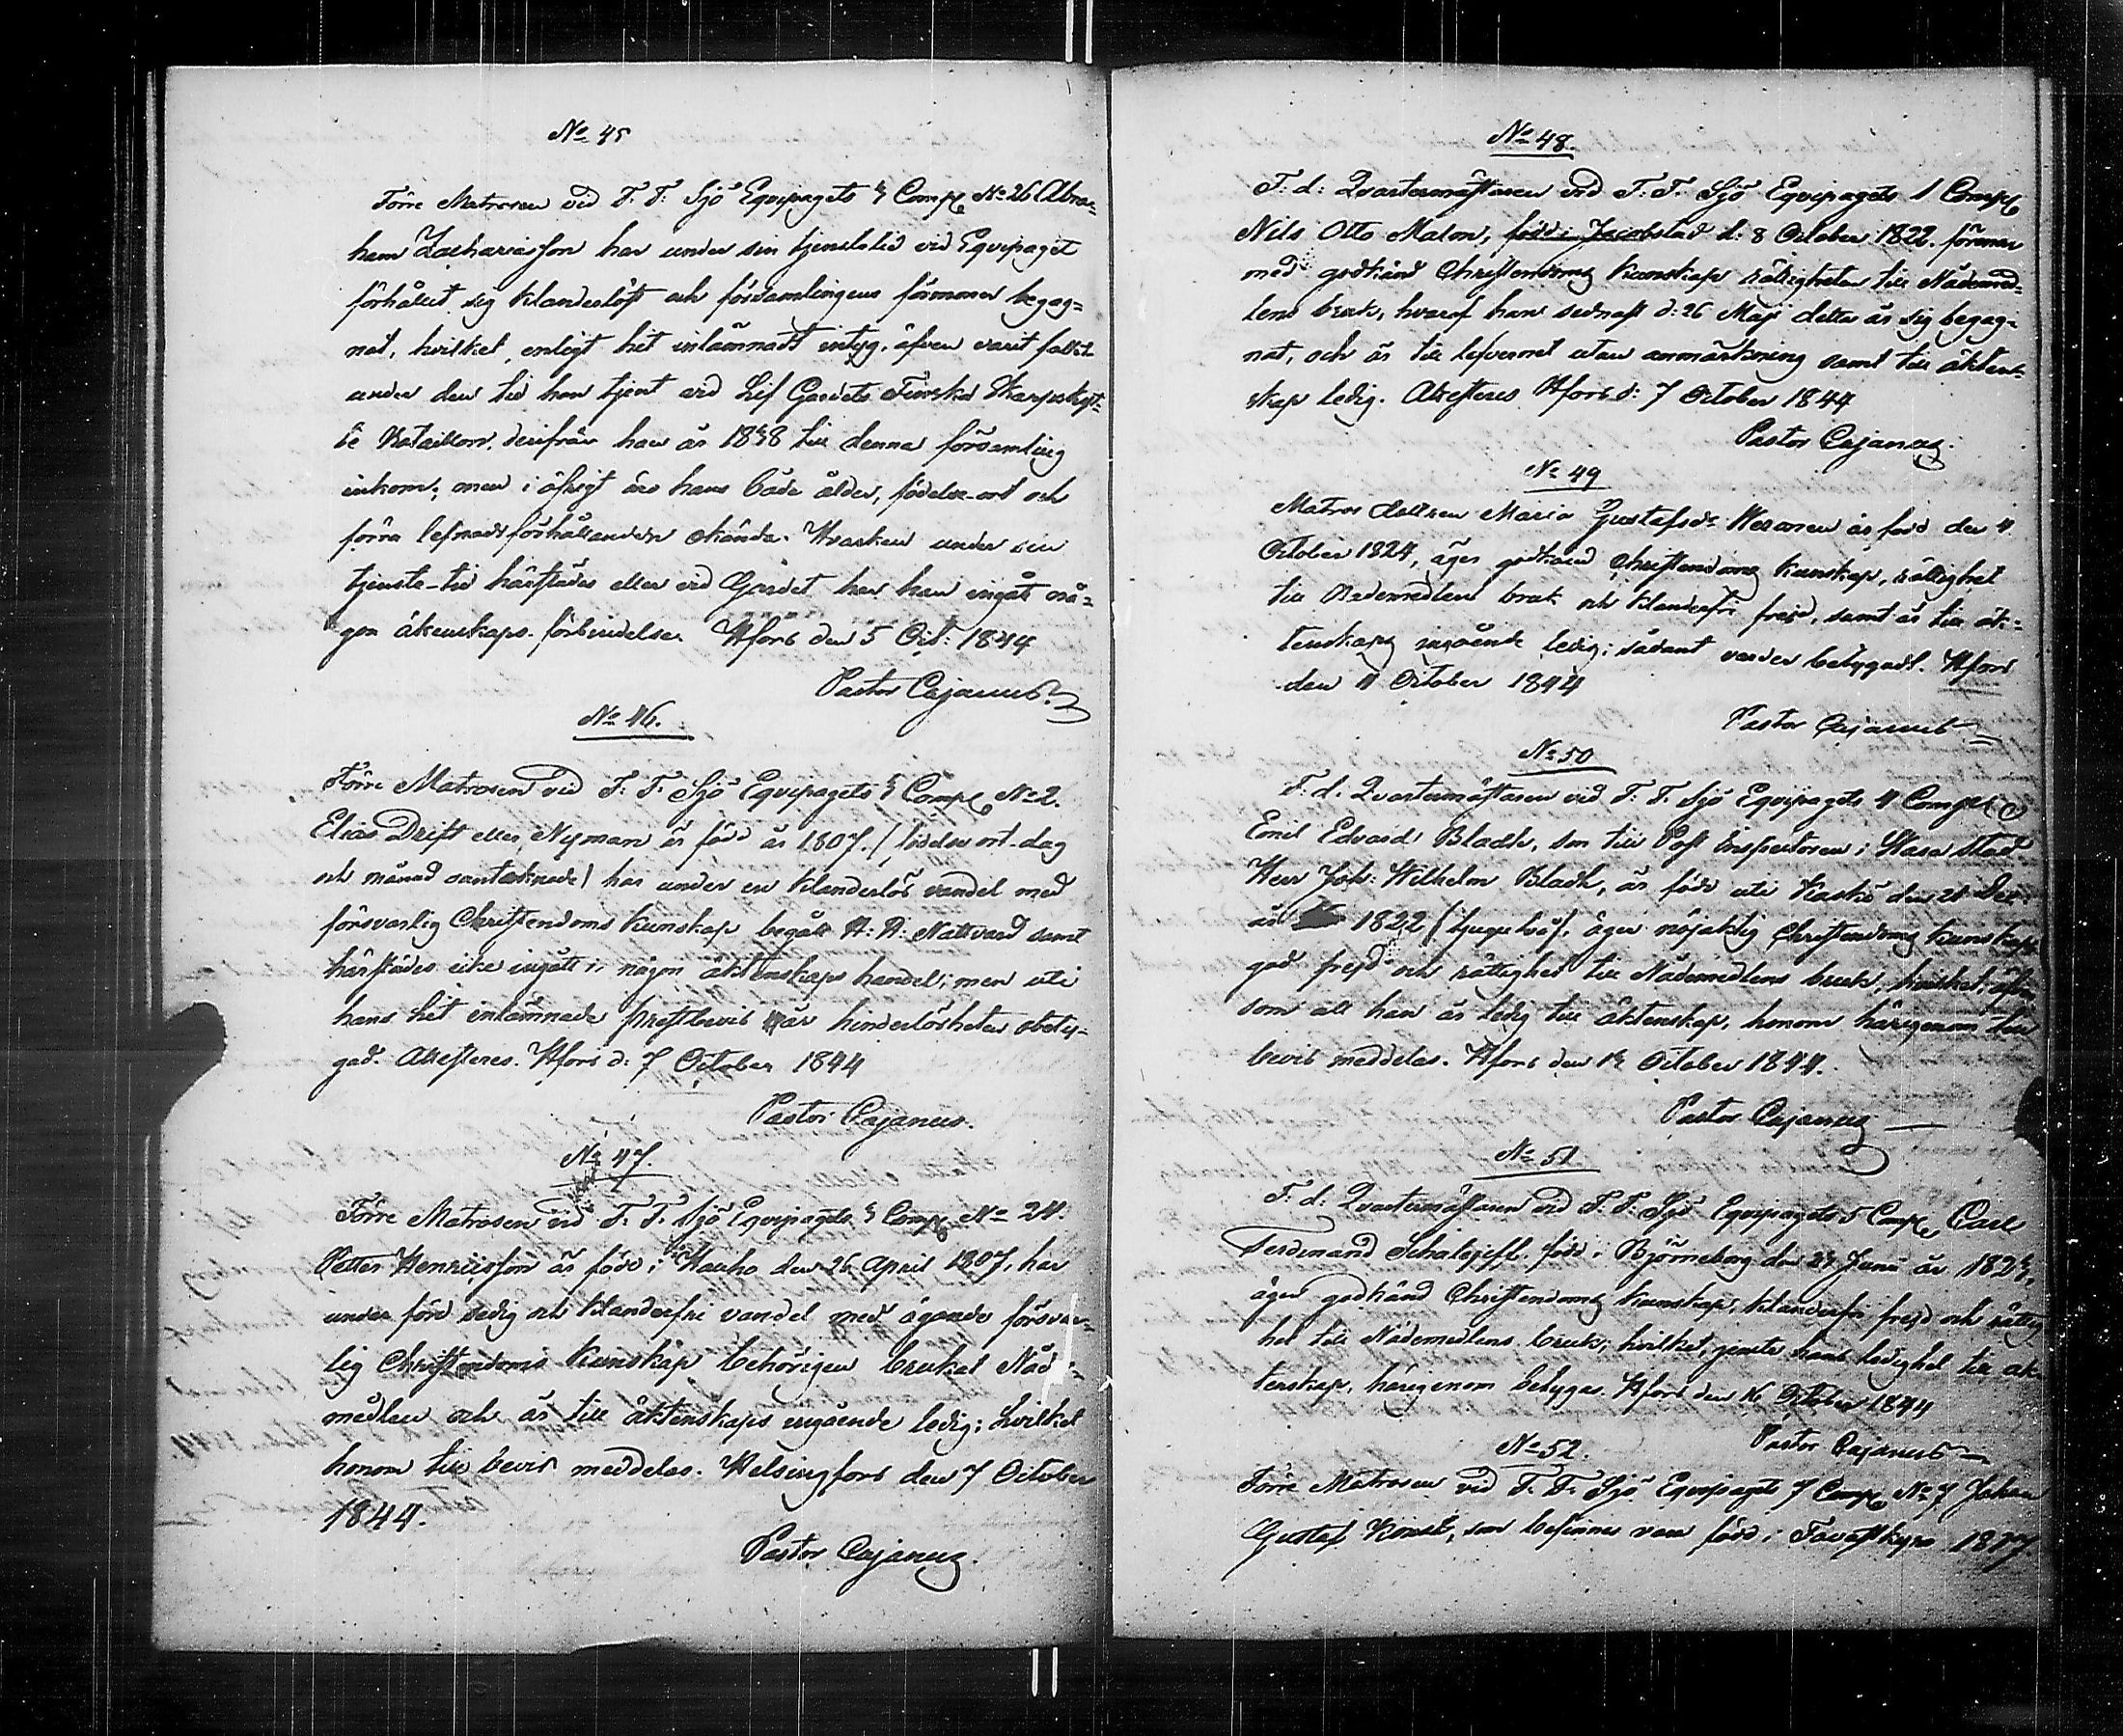 No 45
Förre Matrosen vid F. F. Sjö Equipagets 3 Comp. No 26 Abra-
ham Zachariasson har under sin tjenstetid vid Equipaget
förhållit sig klanderlöst och församlingens förmoner begag-
nat, hvilket, enligt hit inlämnadt intyg, äfven varit fallet
under den tid han tjent vid Lif Gardets Finska Skarpskytt-
e Bataillon, derifrån han år 1838 till denna församling
inkom; men i öfrigt äro hans både ålder, födelse-ort och
förra lefnadsförhållanden okända. Hvarken under sin
tjenste-tid härstädes eller vid Gardet har han ingått nå-
gon äktenskaps-förbindelse. Hfors den 5 Oct: 1844
Pastor Cajanus.
No 46.
Förre Matrosen vid F. F. Sjö Equipagets 3 Comp. No 2.
Elias Drift eller Nyman är född år 1807. (födelse ort-dag
och månad oantecknade) har under en klanderlös vandel med
försvarlig Christendoms kunskap begått H: H: Nattvard samt
härstädes icke ingått i någon äktenskaps handel; men uti
hans hit inlämnade prestbevis är hinderlösheten obety-
gad. Attesteres. Hfors d: 7 October 1844
Pastor Cajanus.
No 47.
Förre Matrosen vid F. F. Sjö Equipagets 3 Comp. No 24.
Petter Henricsson är född i Hauho den 26 April 1807, har
under förd sedig och klanderfri vandel med ägande försvar-
lig Christendoms kunskap behörigen brukat Nåd-
medlen och är till äktenskaps ingående ledig; hvilket
honom till bevis meddelas. Helsingfors den 7 October
1844.
Pastor Cajanus.
No 48.
F. d: Qvartermästaren vid F. F. Sjö Equipagets 1 Comp.
Nils Otto Malm, född i Jacobstad d: 8 October 1822.
med godkänd Christendoms kunskap rättigheten till Nådemed-
lens bruk, hvaraf han sednast d: 26 Maji detta år sig begag-
nat, och är till lefvernet utan anmärkning samt till äkten-
skap ledig. Attesteres Hfors d: 7 October 1844
Pastor Cajanus.
No 49
Matros dottren Maria Gustafsdr. är född den 4
October 1824, äger godkänd Christendoms kunskap, rättighet
till Nådemedlens bruk och klanderfri frejd, samt är till äk-
tenskaps ingående ledig; sådant varder betygadt. Hfors
den 11 October 1844
Pastor Cajanus
No 50
F. d: Qvartermästaren vid F. F. Sjö Equipagets 4 Comp.
Emil Edvard Bladh, son till Post Inspectoren i Wasa stad
Herr Joh: Wilhelm Bladh, är född uti Kaskö den 21 Dec:
år 1822 (tjugutvå), äger nöjaktig Christendoms kunskap
god frejd och rättighet till Nådemedlens bruk, hvilket, äfven
som att han är ledig till äktenskap, honom härigenom till
bevis meddelas. Hfors den 12 October 1844.
Pastor Cajanus
No 51
F. d: Qvartermästaren vid F. F. Sjö Equipagets 5 Comp. Carl
Ferdinand född i Björneborg den 24 Junii år
äger godkänd Christendoms kunskap, klanderfri frejd och rättig-
het till Nådemedlens bruk; hvilket, jemte hans ledighet till äk-
tenskap, härigenom betygas. Hfors den 16 October 1844
Pastor Cajanus
No 52.
Förre Matrosen vid F. F. Sjö Equipagets 7 Comp. No 7 Johan
Gustaf som befinnes vara född i Tavastkyro 1817